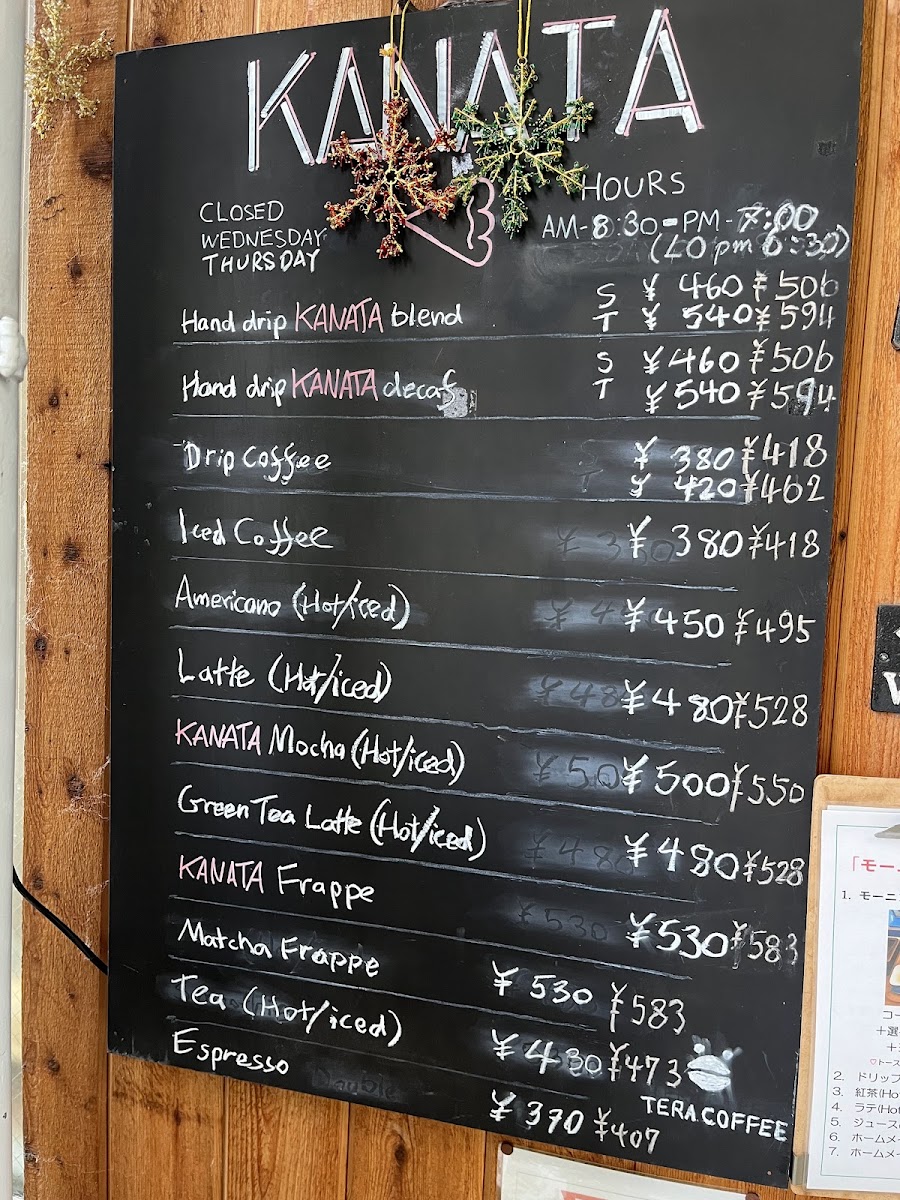 KANATA
CLOSED
WEDNESDAY
THURSDAY
HOURS
AM-8:30-PM-7:00
(LO pm 6:30)
Hand drip KANATA blend S ¥ 460 ¥506
T ¥ 540 ¥594
Hand drip KANATA decaf S ¥460 ¥506
T ¥540 ¥594
Drip Coffee ¥ 380 ¥418
¥ 420 ¥462
Iced Coffee ¥ 380 ¥418
Americano (Hot/iced) ¥450 ¥495
Latte (Hot/iced) ¥480 ¥528
KANATA Mocha (Hot/iced) ¥500 ¥550
Green Tea Latte (Hot/iced) ¥480 ¥528
KANATA Frappe ¥530 ¥583
Matcha Frappe ¥ 530 ¥583
Tea (Hot/iced) ¥ 430 ¥473
Espresso ¥ 370 ¥407
TERA COFFEE
「モー
1. モーニ
コー
+選
2. ドリップ
3. 紅茶(Ho
4. ラテ(Hot
5. ジュース
6. ホームメー
7. ホームメー